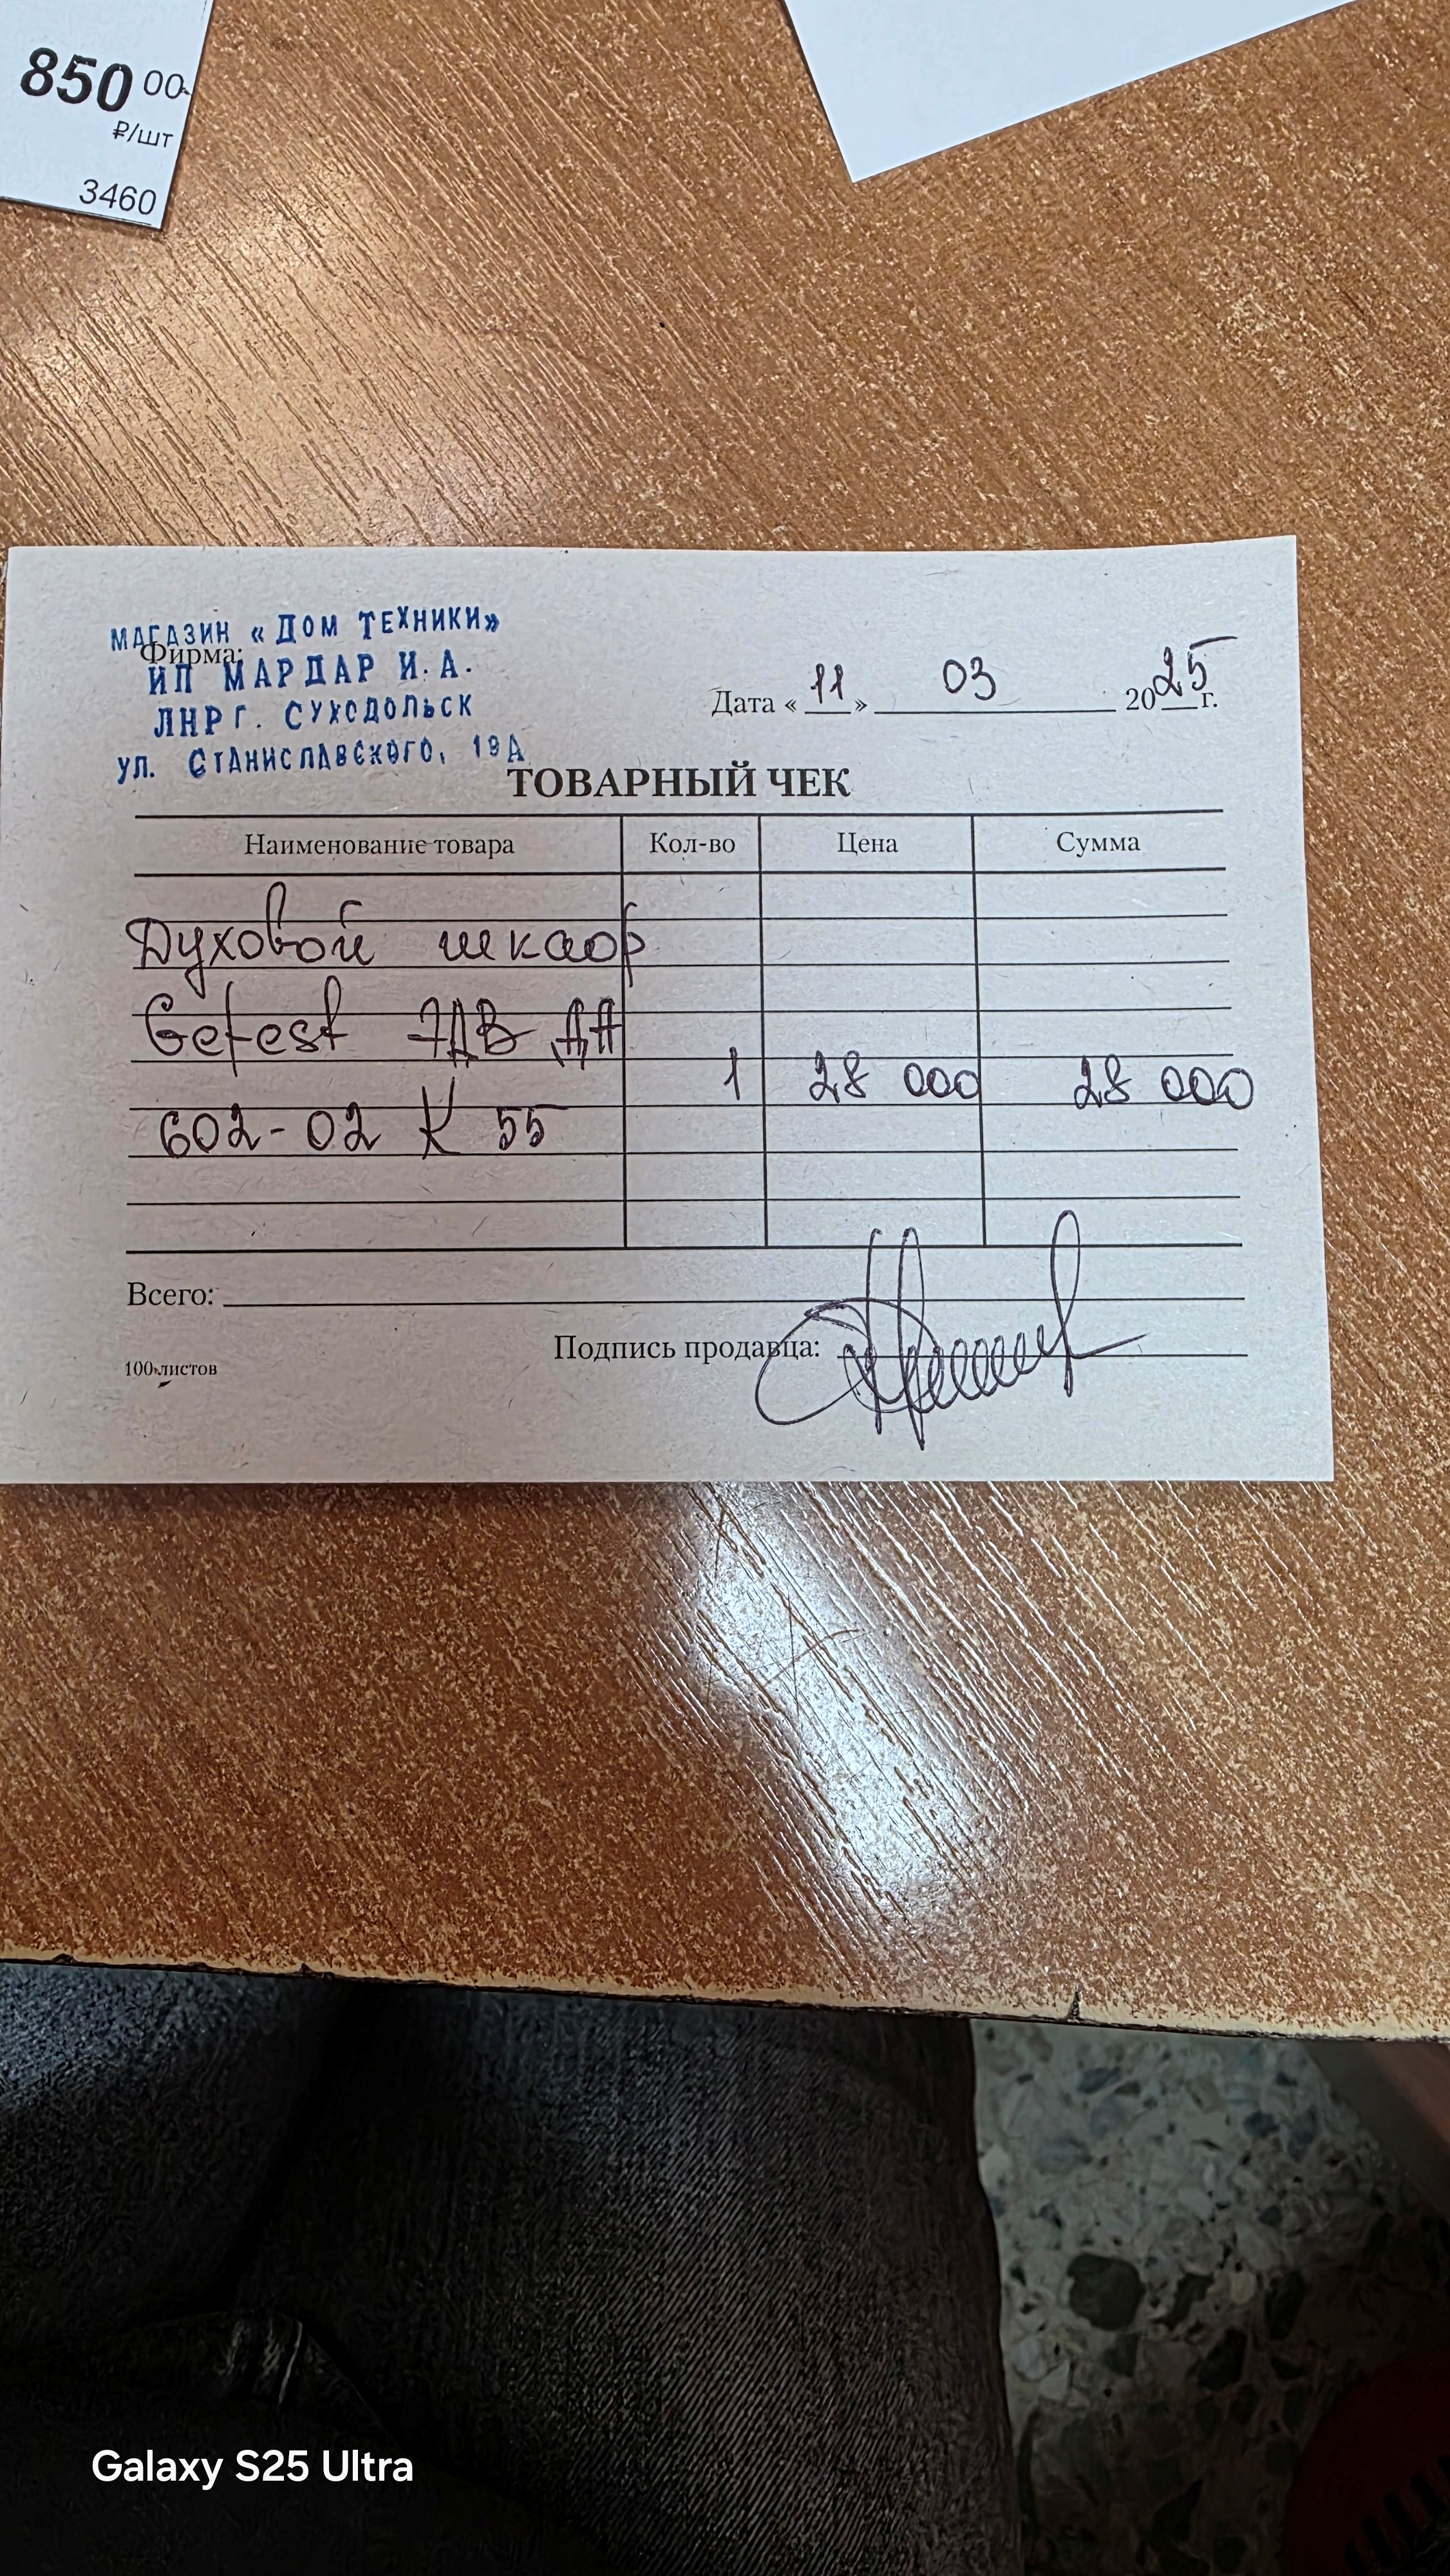 850 00
₽/шт
3460
МАГАЗИН «ДОМ ТЕХНИКИ»
Фирма:
ИП МАРДАР И. А.
ЛНР Г. СУХОДОЛЬСК
УЛ. СТАНИСЛАВСКОГО, 19А
Дата « 11 » 03 2025 г.
ТОВАРНЫЙ ЧЕК
Наименование товара Кол-во Цена Сумма
Духовой шкаф
Gefest ЭДВ ДА
602-02 К 55 1 28 000 28 000
Всего:
Подпись продавца:
100 листов
Galaxy S25 Ultra